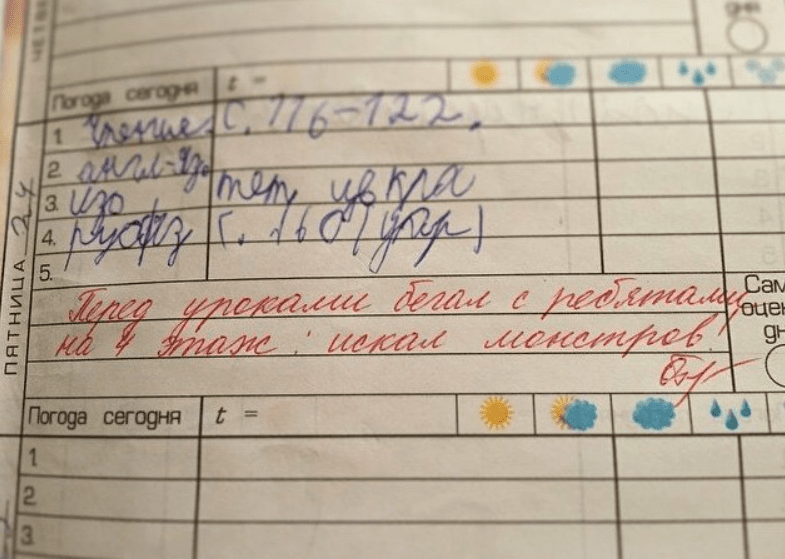 ЧЕТВЕ
дня
Погода сегодня t =
1 Чтение. С. 116-122.
2. англ-яз.
3. изо тет, цв кра
4. С. 160 (упр)
5.
ПЯТНИЦА 24
Перед уроками бегал с ребятами
на 4 этаж: искал монстров!
Сам
оцен
дн
Погода сегодня t =
1
2
3.